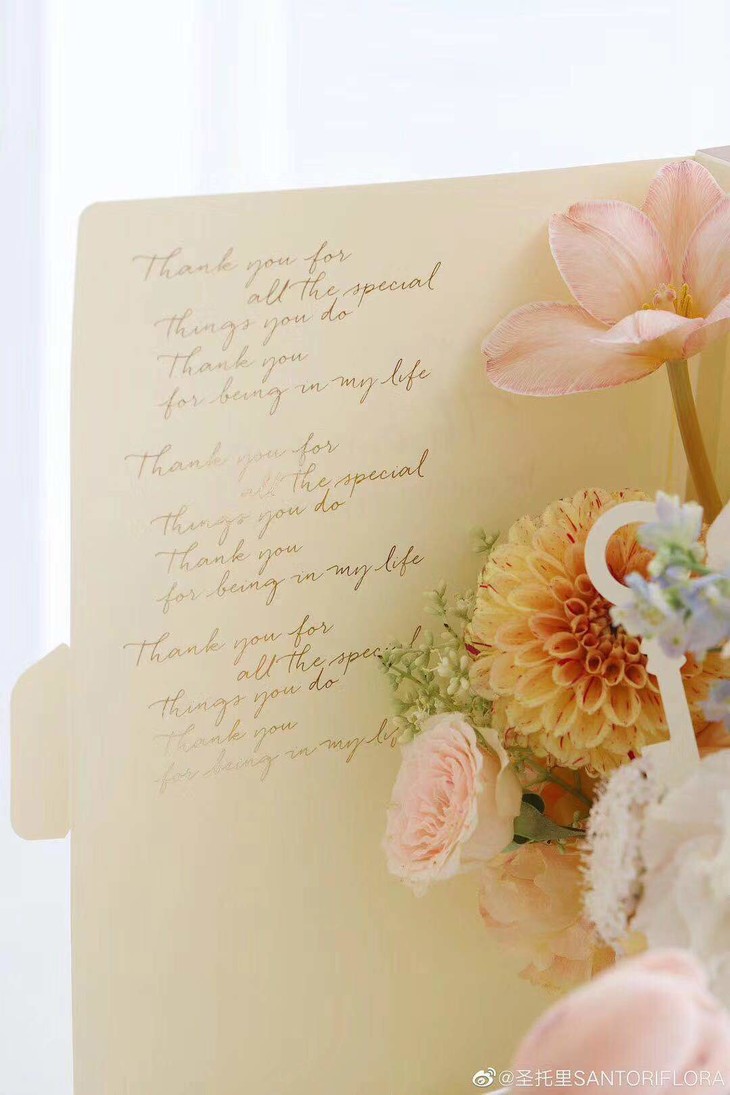 Thank you for
all the special
Things you do
Thank you
for being in my life
Thank you for
all the special
Things you do
Thank you
for being in my life
Thank you for
all the special
Things you do
Thank you
for being in my
@圣托里SANTORIFLORA